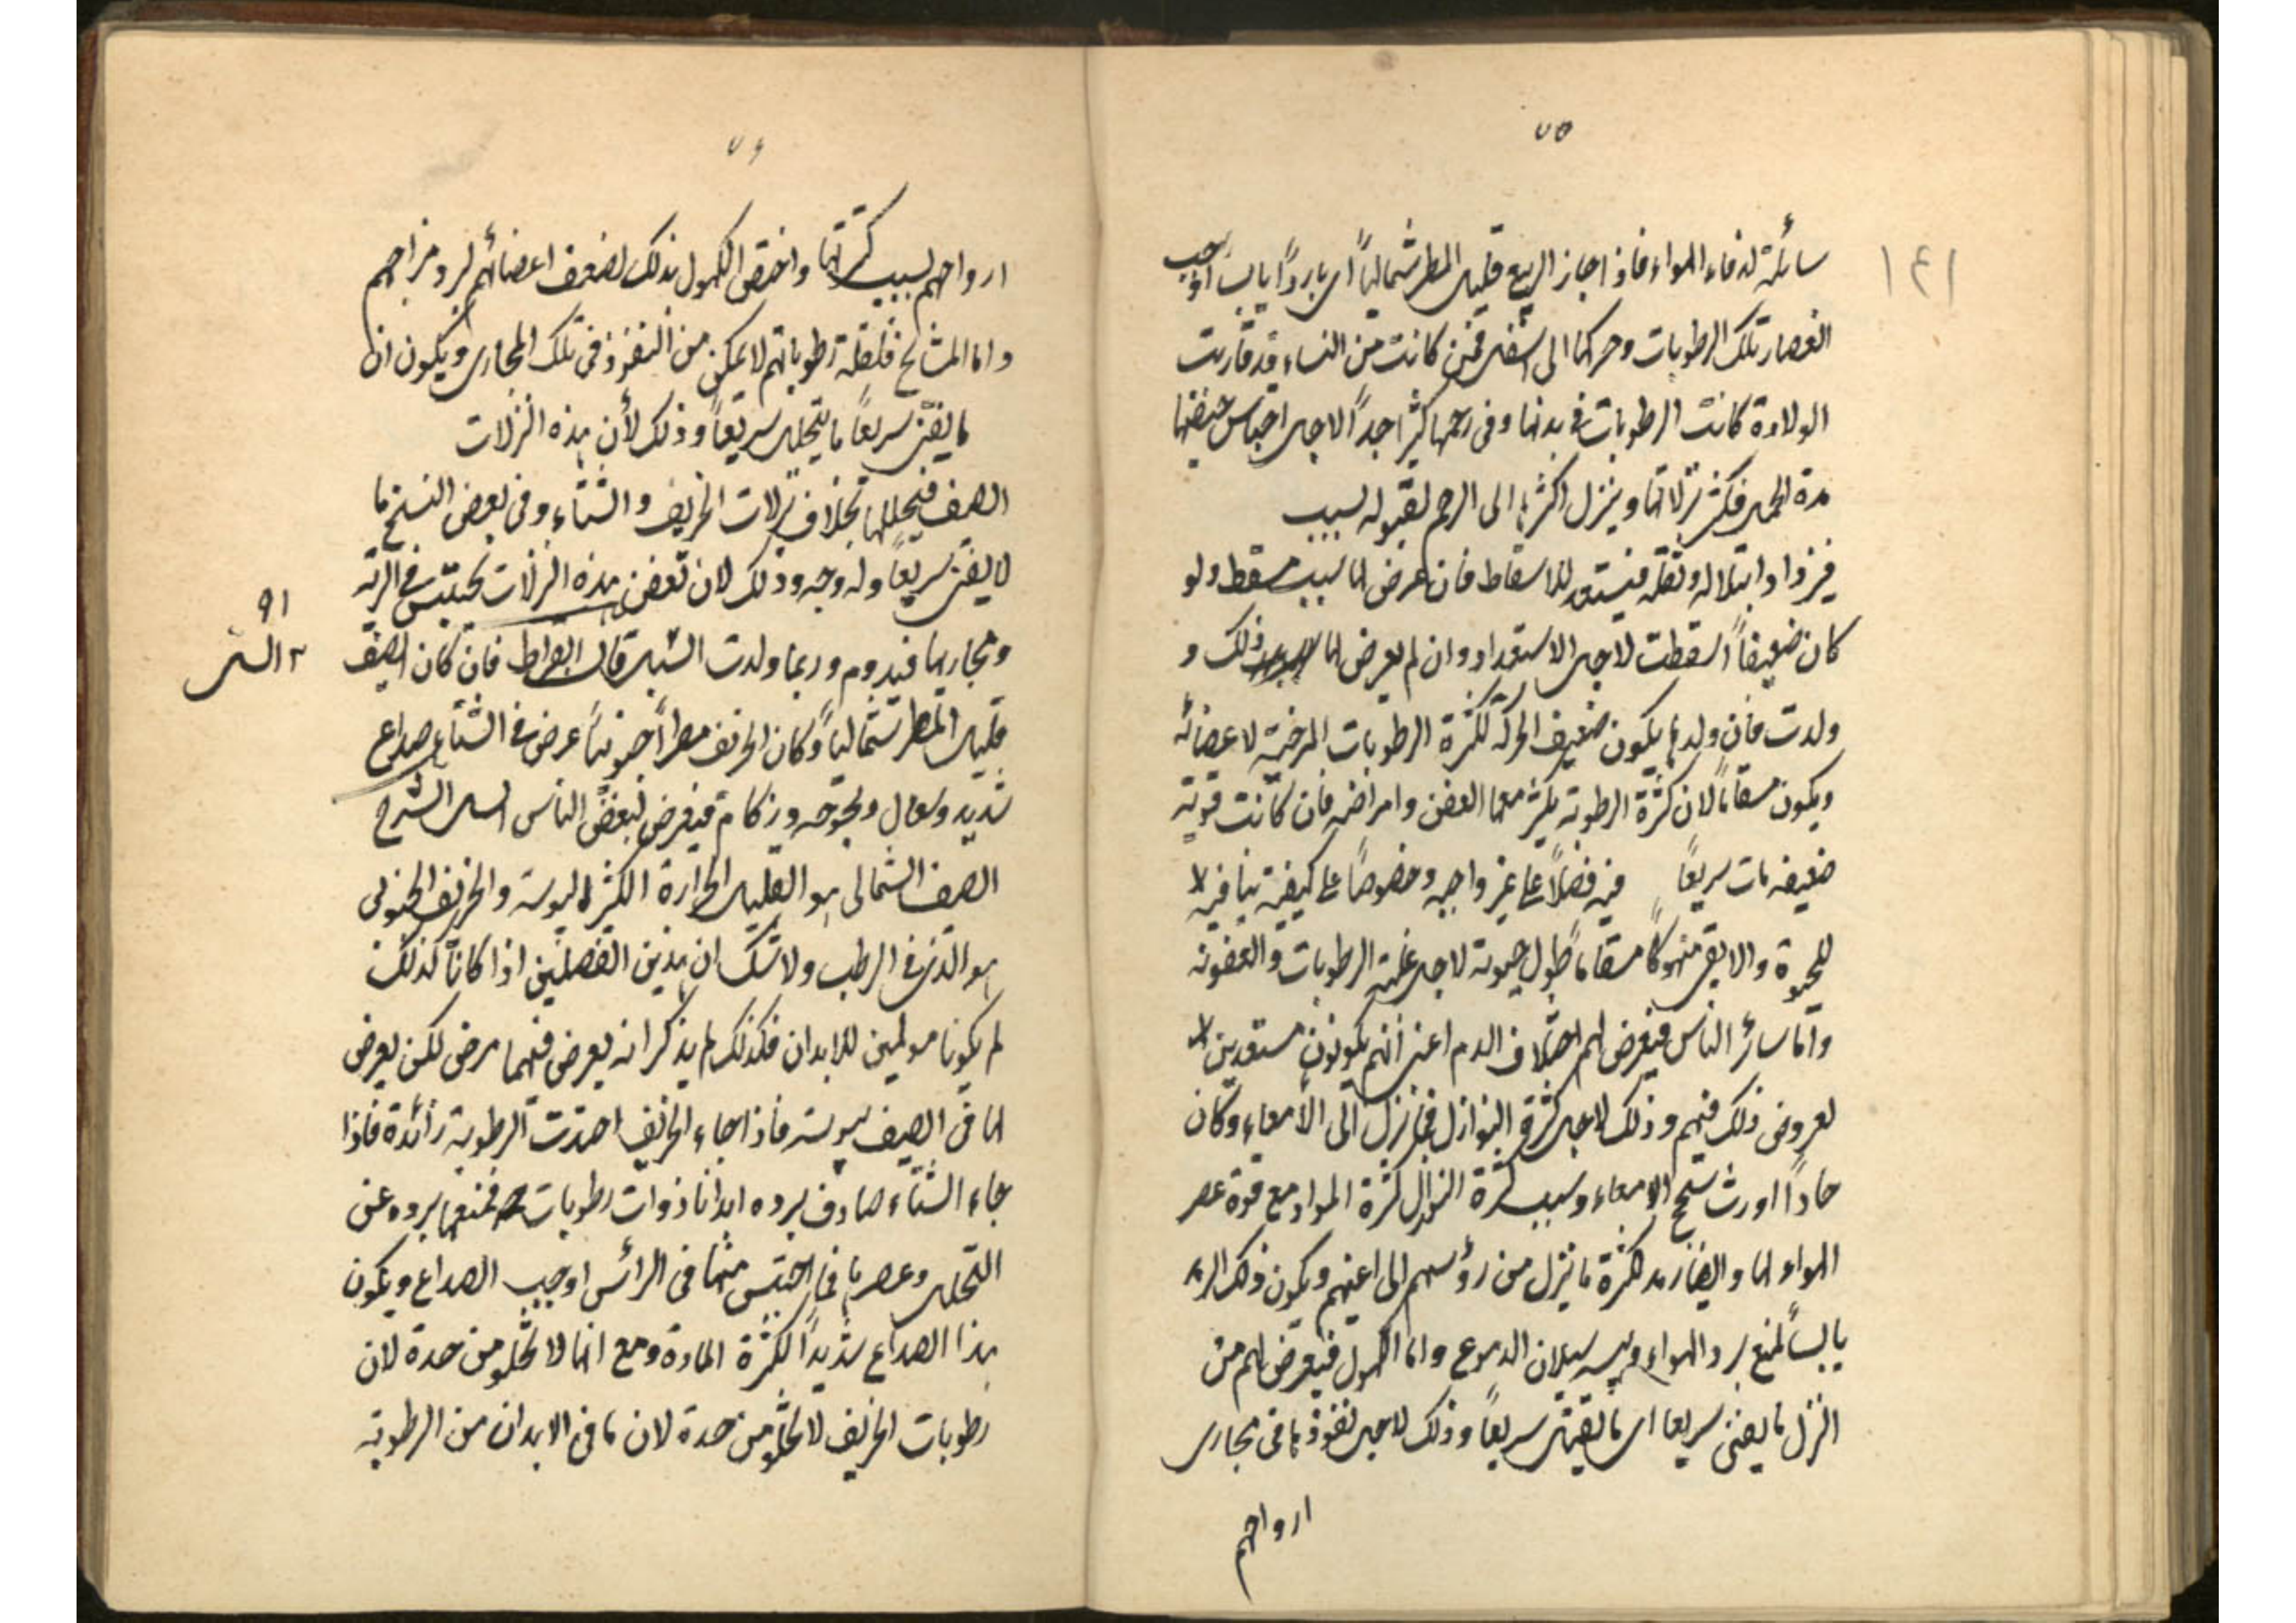 ٧٥
١٤١
سائلة لدفاء الهواء فاذا جاء الربيع قليل المطر شماليًا اى باردًا يابسا اوجب
انعصار تلك الرطوبات وحركتها الى اسفل فمن كانت من النساء قد قاربت
الولادة كانت الرطوبات فى بدنها وفى رحمها كثيرا جدًا لاجل احتباس حيضها
مدة الحمل فكثر نزلاتها وينزل اكثرها الى الرحم لقبوله بسبب
فيزداد ابتلاله وثقله فيستعد للاسقاط فان عرض لها سبب مسقط ولو
كان ضعيفًا اسقطت لاجل الاستعداد وان لم يعرض لها ذلك و
ولدت فان ولدها يكون ضعيف الحركة لكثرة الرطوبات المرخية لاعضائه
ويكون مسقامًا لان كثرة الرطوبة يكثر معها العفن وامراضه فان كانت قوته
ضعيفه مات سريعًا فيه فضلًا على غير واجبه وخصوصًا على كيفية ينافيه لا
للحيوة والا بقى منهوكًا مسقامًا طول حيوته لاجل غلبة الرطوبات والعفونه
وامّا سائر الناس فيعرض لهم اختلاف الدم اعنى انهم يكونون مستعدين لا
لعروض ذلك فيهم وذلك لاجل كثرة النوازل فما نزل الى الأمعاء وكان
حادًا اورث سحج الامعاء وسبب كثرة النوازل كثرة المواد مع قوة عصر
الهواء لها وايضا رمد لكثرة ما ينزل من رؤسهم الى اعينهم ويكون ذلك الرمد
يابسًا لمنع برد الهواء ويبسه سيلان الدموع واما الكهول فيعرض لهم من
النزل ما يفنى سريعا اى ما يقتل سريعًا وذلك لاجل نفوذها فى مجارى
ارواحهم
٧٦
ارواحهم بسبب كثرتها واختص الكهول بذلك لضعف اعضائهم لبرد مزاجهم
واما المشائخ فلقلة رطوباتهم لا يمكن من النفوذ فى تلك المجارى ويكون ان
ما يفنى سريعًا ما يتحلل سريعًا وذلك لأن هذه النزلات
الصيف فيحللها بخلاف نزلات الخريف والشتاء وفى بعض النسخ ما
لا يفنى سريعًا وله وجه وذلك لان بعض هذه النزلات يحتبس فى الرية
ومجاريها فيدوم وربما ولدت السل قال ابقراط فان كان الصيف
قليل المطر شماليًا وكان الخريف مطرًا جنوبيًا عرض فى الشتاء صداع
شديد وسعال وبحوحه وزكام فيعرض لبعض الناس السل الشرح
الصيف الشمالى هو القليل الحرارة الكثير اليبوسة والخريف الجنوبى
هو الدفى الرطب ولا شك ان هذين الفصلين اذا كانا كذلك
لم يكونا مولمين للابدان فكذلك لم يذكر انه يعرض فيهما مرض لكن يعرض
لها فى الصيف يبوسة فاذا جاء الخريف احدثت الرطوبة زائدة فاذا
جاء الشتاء صادف برده ابدانا ذوات رطوبات فمنعها برده عن
التحلل وعصرها فما احتبس منها فى الرأس اوجب الصداع ويكون
هذا الصداع شديدًا لكثرة المادة ومع انها لا تخلو من حدة لان
رطوبات الخريف لا تخلو من حدة لان ما فى الابدان من الرطوبة
٩١